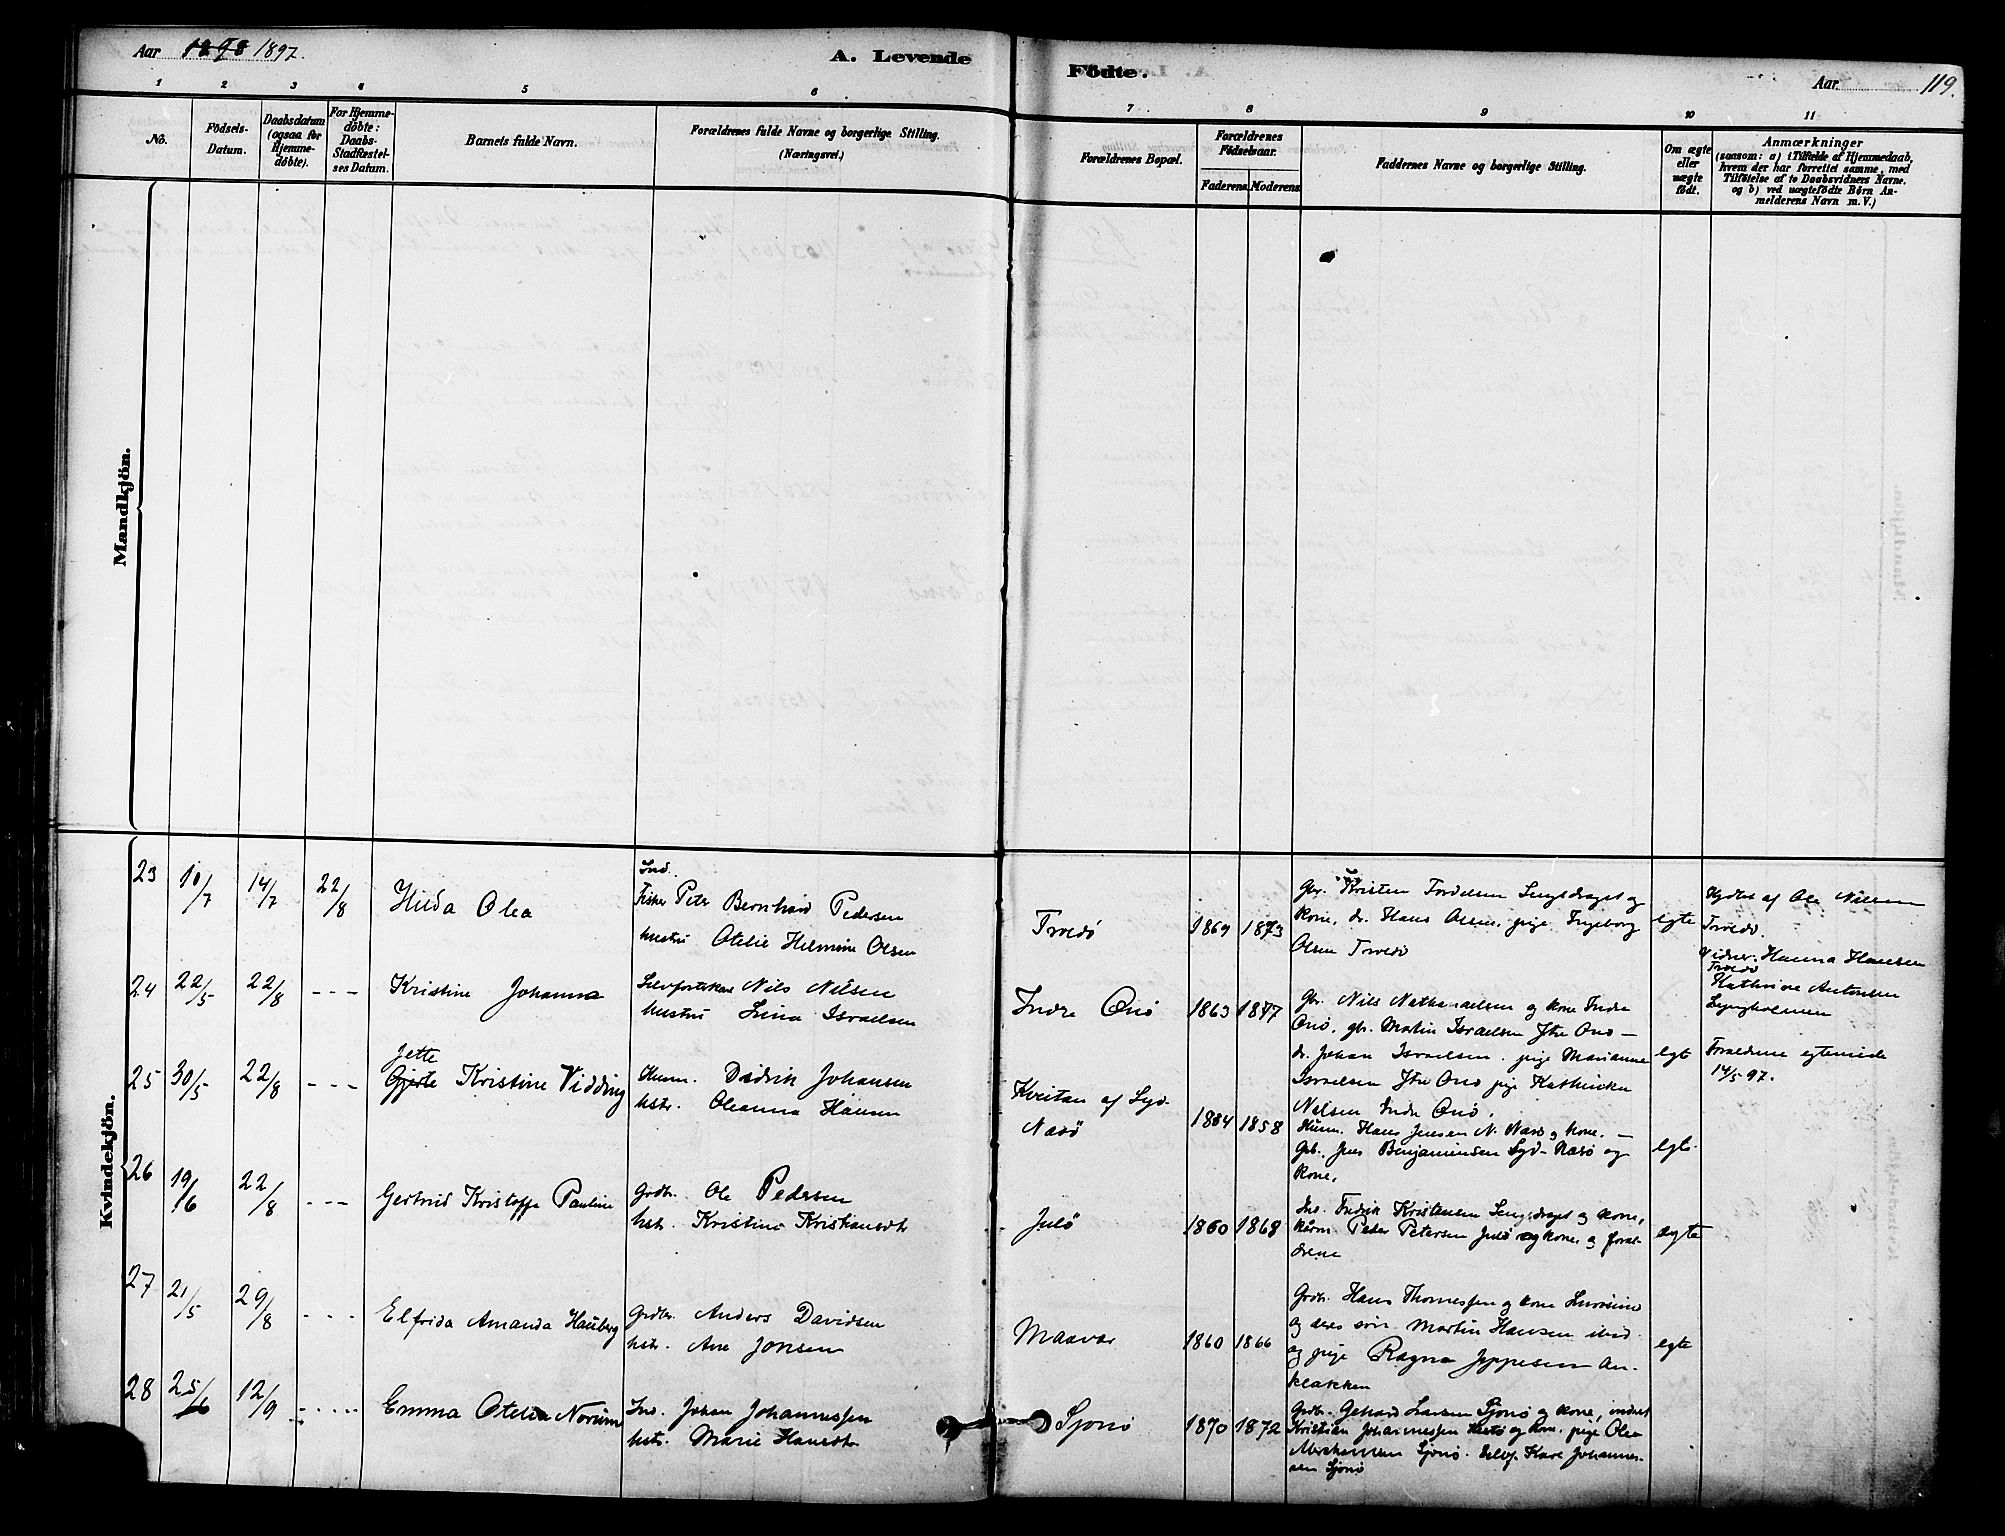 Aar 1898 1897.
A. Levende
Födte.
Aar 119.
1 2 3 4 5 6 7 8 9 10 11
No.
Födsels-Datum.
Daabsdatum (ogsaa for Hjemme-döbte).
For Hjemme-döbte: Daabs-Stadfæstel-ses Datum.
Barnets fulde Navn.
Forældrenes fulde Navne og borgerlige Stilling.
(Næringsvei.)
Forældrenes Bopæl.
Forældrenes Födselsaar.
Faderens. Moderens.
Faddernes Navne og borgerlige Stilling.
Om ægte eller uægte födt.
Anmærkninger
(saasom: a) i Tilfælde af Hjemmedaab,
hvem der har forrettet samme, med
Tilföielse af to Daabsvidners Navne,
og b) ved uægtefödte Börn An-
melderens Navn m. V.)
Mandkjön.
Kvindekjön.
23 10/7 14/7 22/8 Hilda Olea
Ind.
Fisker Peter Bernhard Pedersen
hustru Otelie Helmine Olsen
Troedö 1869 1873
Gbr. Kristen Tordelsen Lengsdraget og
kone, dr. Hans Olsen, pige Ingeborg
Olsen Troedö
egte
Hjdbt af Ole Nilsen
Troedö.
Vidner. Hanna Hansen
Troedö
Kathrine Antonsen
Lyngholmen
24 22/5 22/8 - - - Kristine Johanna
Selvfosterkar Nils Nilsen
hustru Lina Israelsen
Indre Onö 1863 1877
Gbr. Nils Nathanaelsen og kone Indre
Onö, gbr. Martin Israelsen Ytre Onö -
dr. Johan Israelsen, pige Marianne
Israelsen Ytre Onö pige Kathinka
Nelsen Indre Onö.
egt
Forældrene egteviede
14/5 97.
25 30/5 22/8 - - -
Jette
Gjerte Kristine Vidding
Husm. Didrik Johansen
hstr. Oleanna Hansen
Kvitan af Syd-
Næsö
1864 1858
Husm. Hans Jensen N. Næsö og kone. -
Gbr. Jens Benjaminsen Syd-Næsö og
kone.
egte
26 19/6 22/8 - - - Gertrud Kristoffa Pauline
Grdbr. Ole Pedersen
hstr. Kristina Kristiansdtr
Julö 1860 1868
Ind. Fredrik Kristensen Lengsdraget og kone,
husm Peder Petersen Julö og kone og foræl-
drene
ægte
27 21/5 29/8 - - - Elfrida Amanda Hauberg
Grdbr. Anders Davidsen
hstr. Ane Jonsen
Maavær 1860 1866
Grdbr. Hans Thomessen og kone Lurøine
og deres søn Martin Hansen ibid.
og pige Ragna Jeppesen An-
klakken
egte
28 25/6 12/9 - - - - Emma Otelia Norum
Ind. Johan Johannessen
hstr. Marie Hansdtr
Sjonö 1870 1872
Grdbr. Gehard Larsen Sjonö og kone, inderst
Kristian Johannessen Hestö og kone, pige Olea
Sjonö. Selvf. Kare Johannes-
sen Sjonö